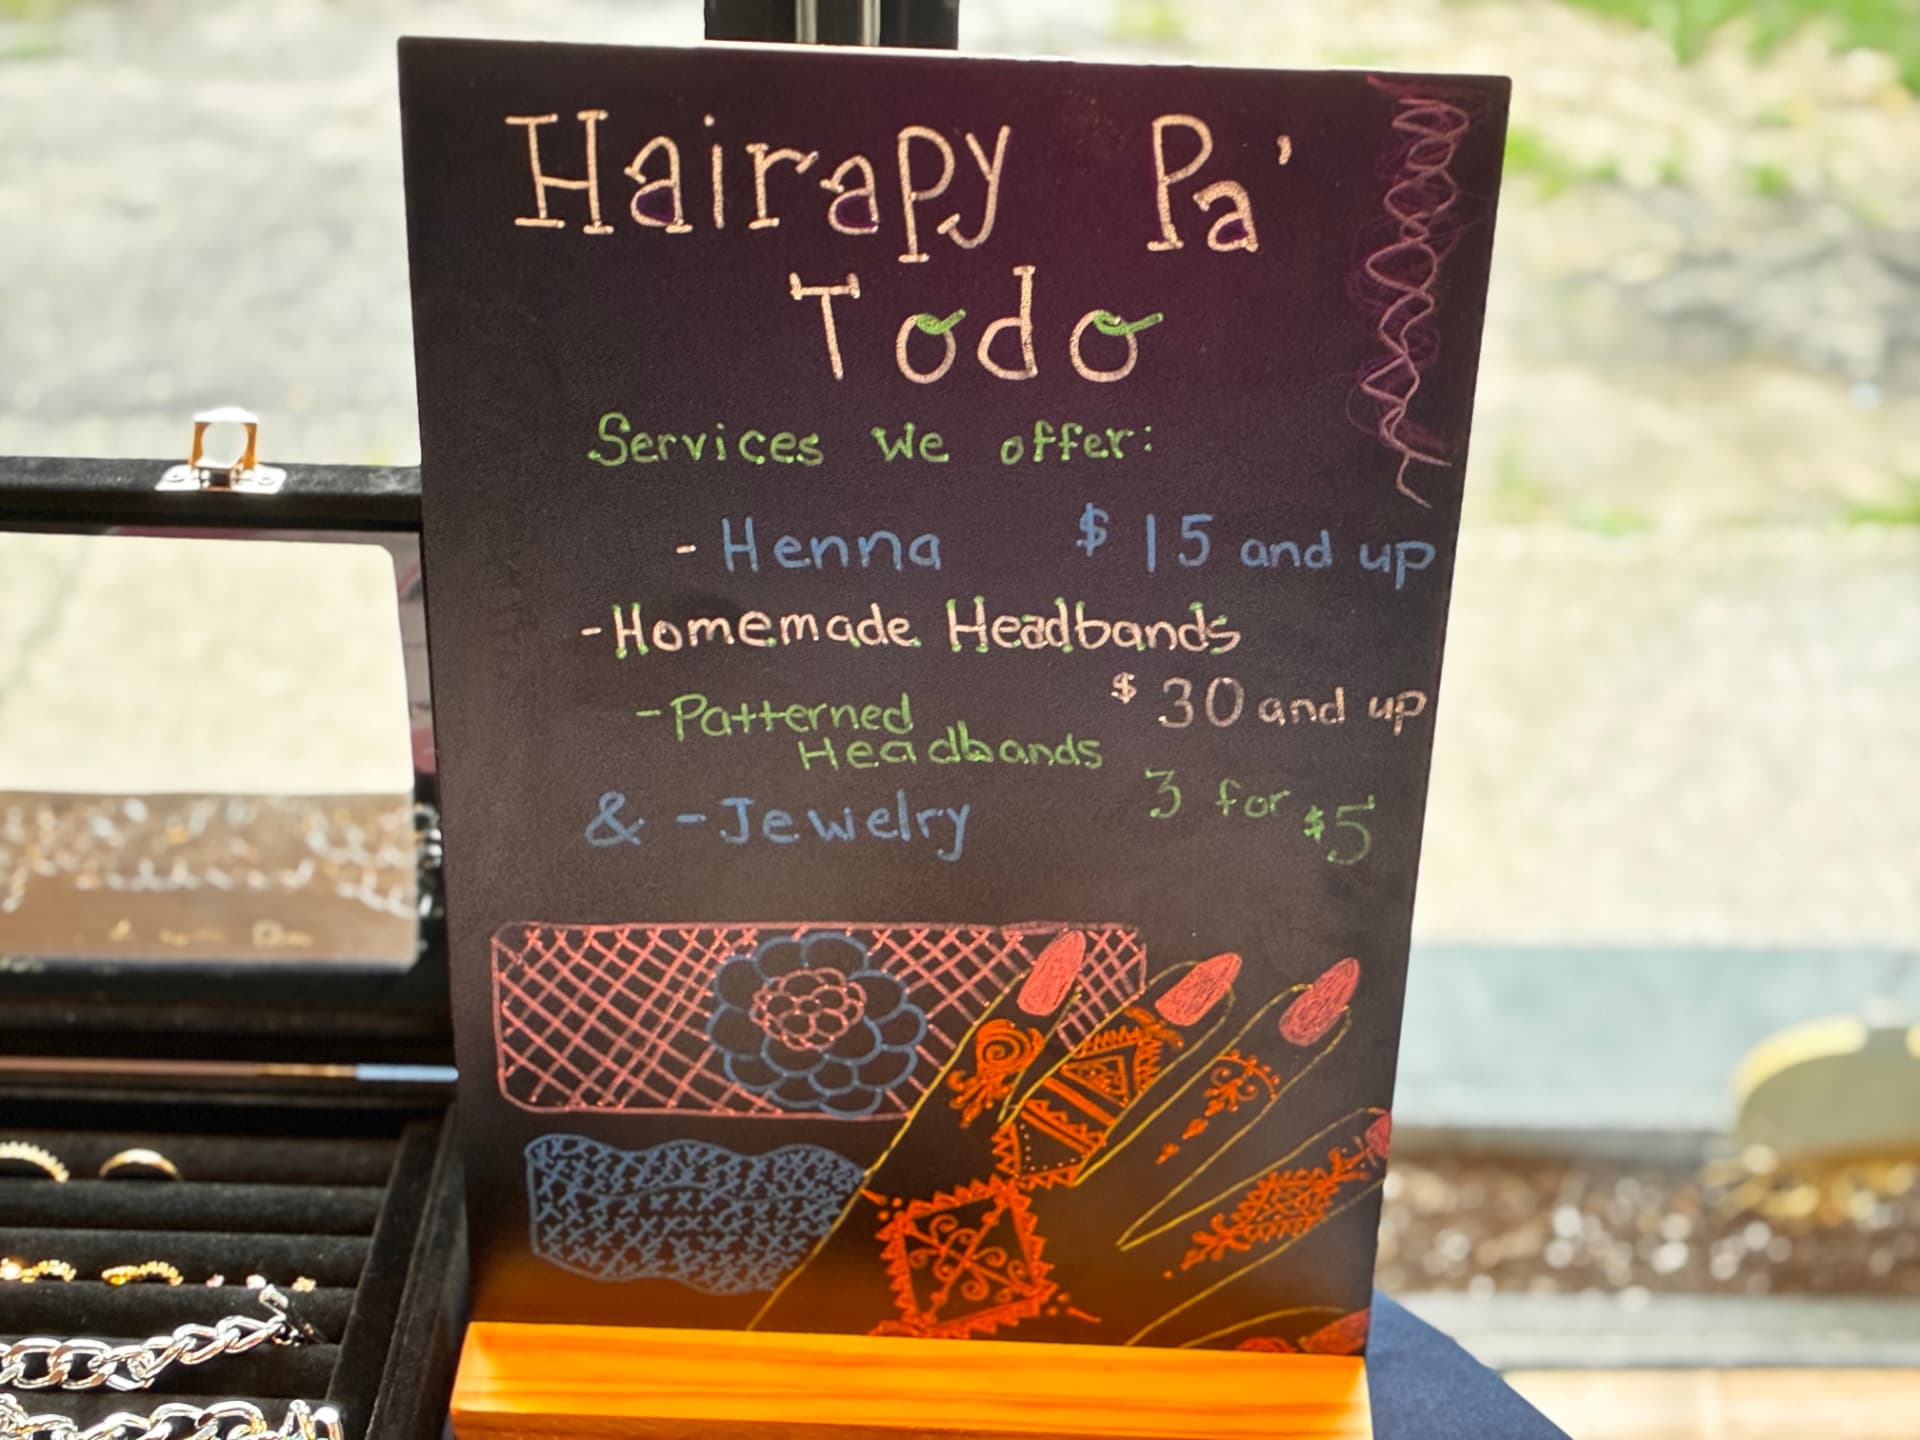 Hairapy Pa'
Todo
Services we offer:
- Henna $15 and up
- Homemade Headbands
$30 and up
- Patterned
Headbands
3 for $5
& - Jewelry